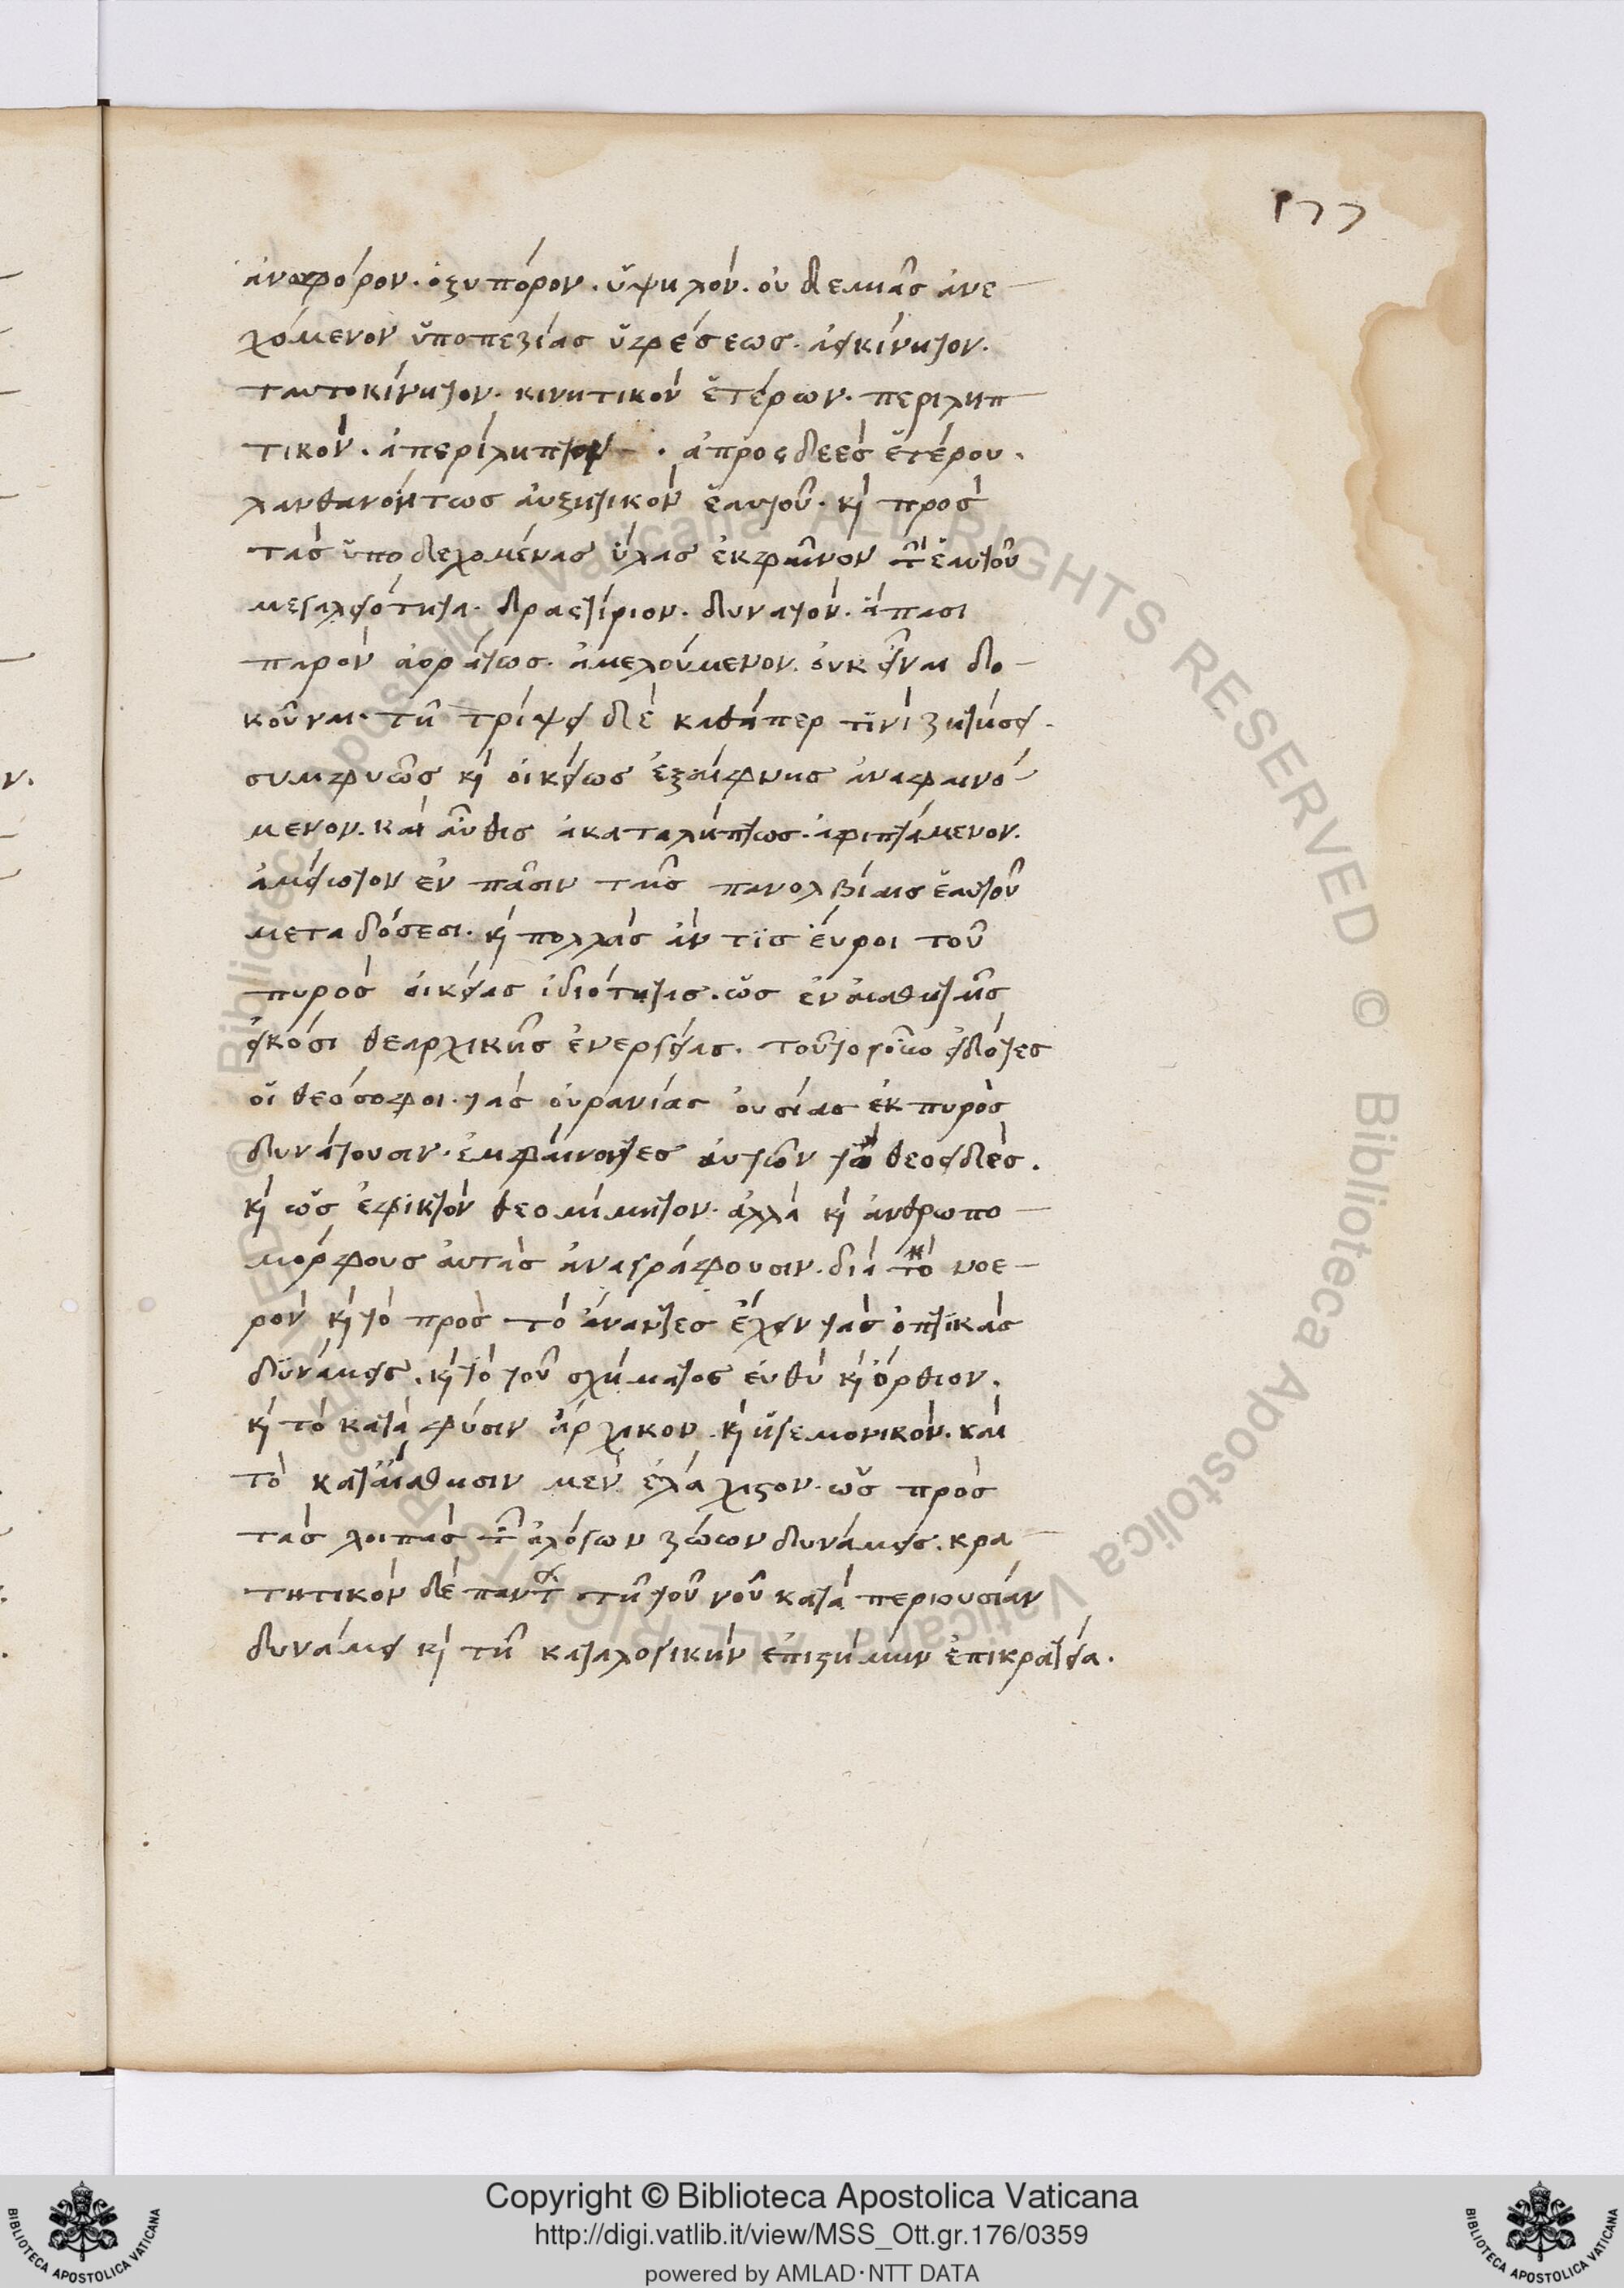 ρ77
ἀνώφορον. ὀξυπόρον. ὑψηλόν. οὐδεμιᾶς ἀνε-
χόμενον ὑποπεζίας ὑφέσεως. ἀεικίνητον.
ταυτοκίνητον. κινητικὸν ἑτέρων. περιληπ
τικὸν. ἀπερίληπτον - . ἀπροσδεὲς ἑτέρου.
λανθανόντως αὐξητικὸν ἑαυτοῦ. κὶ πρὸς
τὰς ὑποδεχομένας ὕλας ἐκφαῖνον τὴν ἑαυτοῦ
μεγαλειότητα. δραστίριον. δυνατὸν. ἅπασι
παρὸν ἀοράτως. ἀμελούμενον. οὐκ εἶναι δο-
κοῦν. τῆ τρίψει δὲ καθάπερ τινὶ ζητήσει.
συμφυῶς κὶ οἰκείως ἐξαίφνης ἀναφαινό-
μενον. καὶ αὖθις ἀκαταλήπτως. ἀφιπτάμενον.
ἀμείωτον ἐν πᾶσιν ταῖς πανολβίαις ἑαυτοῦ
μεταδόσεσι. κὶ πολλὰς ἄν τὶς εὕροι τοῦ
πυρὸς οἰκείας ἰδιότητας. ὡς ἐν αἰσθηταῖς
εἰκόσι θεαρχικῆς ἐνεργείας. τοῦτο γοῦν εἰδότες
οἱ θεόσοφοι. τὰς οὐρανίας οὐσίας ἐκ πυρὸς
δυνάτουσιν. ἐμφαίνοντες αὐτῶν τὸ θεοειδὲς.
κὶ ὡς ἐφικτὸν θεομίμητον. ἀλλὰ κὶ ἀνθρωπο-
μόρφους αὐτὰς ἀναγράφουσιν. διὰ τὸ νοε-
ρὸν κὶ τὸ πρὸς τὸ ἄναντες ἔχειν τὰς ὀπτικὰς
δυνάμεις. κὶ τὸ τοῦ σχήματος εὐθὺ κὶ ὄρθιον.
κὶ τὸ κατὰ φύσιν ἀρχικον. κὶ ἡγεμονικὸν. καὶ
τὸ κατ' αἴσθησιν μὲν ἐλάχιστον. ὡς πρὸς
τὰς λοιπὰς τῶν ἀλόγων ζώων δυνάμεις. κρα-
τητικὸν δὲ πάντων τῆ τοῦ νοῦ κατὰ περιουσίαν
δυνάμει κὶ τῆ κατὰ λογικὴν ἐπιστήμην ἐπικρατεία.
Copyright © Biblioteca Apostolica Vaticana
http://digi.vatlib.it/view/MSS_Ott.gr.176/0359
powered by AMLAD·NTT DATA